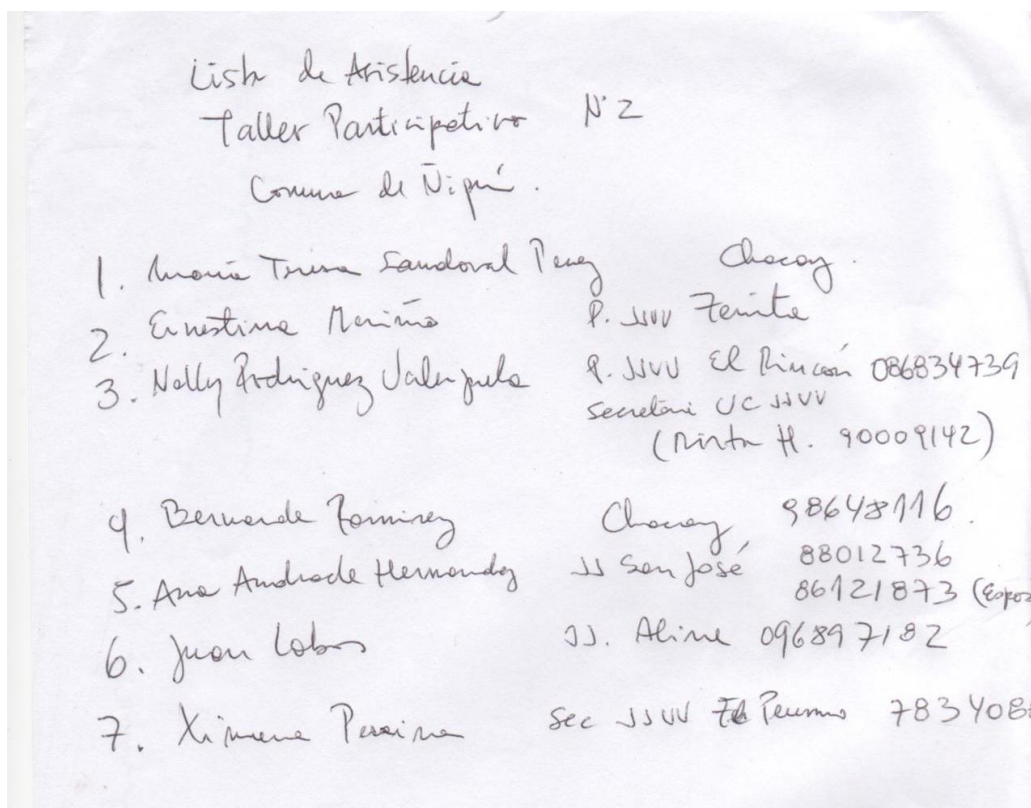 Lista de Asistencia
Taller Participativo N°2
Comuna de Ñiquén.
1. María Teresa Sandoval Perez Chacay.
2. Ernestina Mariño P. JJVV Zemita
3. Nelly Rodriguez Valenzuela P. JJVV El Rincón 086834739
Secretari UC JJVV
(Mirta H. 90009142)
4. Bernarda Ramirez Chacay 98648116.
5. Ana Andrade Hernandez JJ San José 88012736
86121873 (Espoz
6. Juan Lobos JJ. Aline 096897182
7. Ximena sec JJVV Peumo 783408